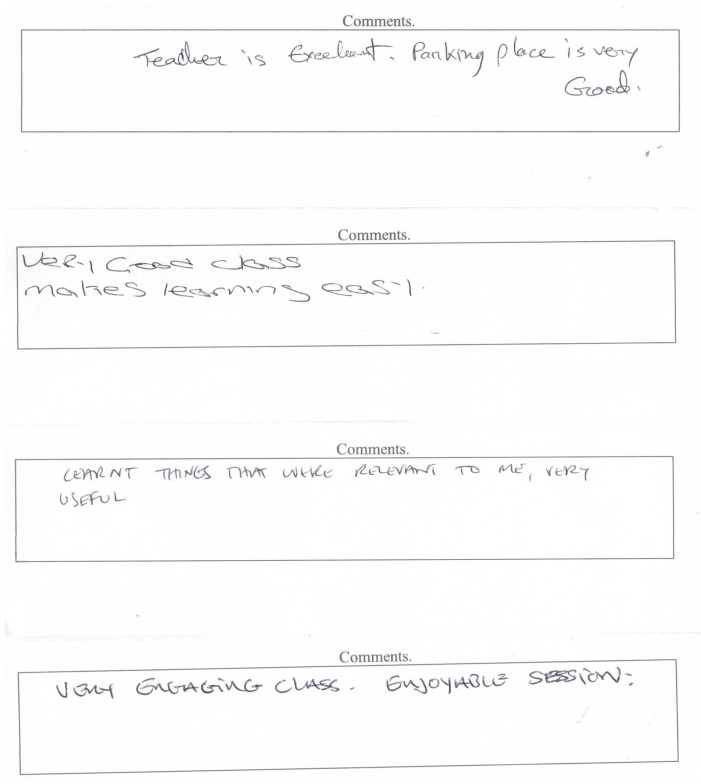 Comments.
Teacher is Excelent. Parking place is very
Good.
Comments.
Very Good class
makes learning easy.
Comments.
LEARNT THINGS THAT WERE RELEVANT TO ME, VERY
USEFUL
Comments.
VERY ENGAGING CLASS. ENJOYABLE SESSION.